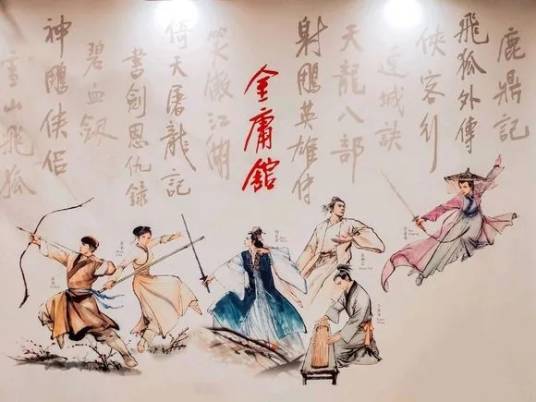 鹿鼎記
飛狐外傳
俠客行
連城訣
天龍八部
射鵰英雄傳
金庸館
笑傲江湖
倚天屠龍記
書劍恩仇錄
碧血劍
神鵰俠侶
雪山飛狐